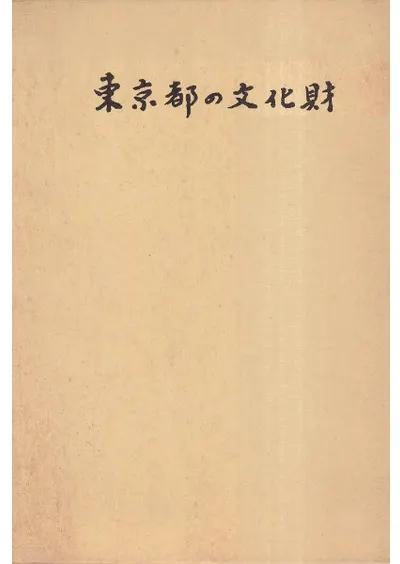 東京都の文化財